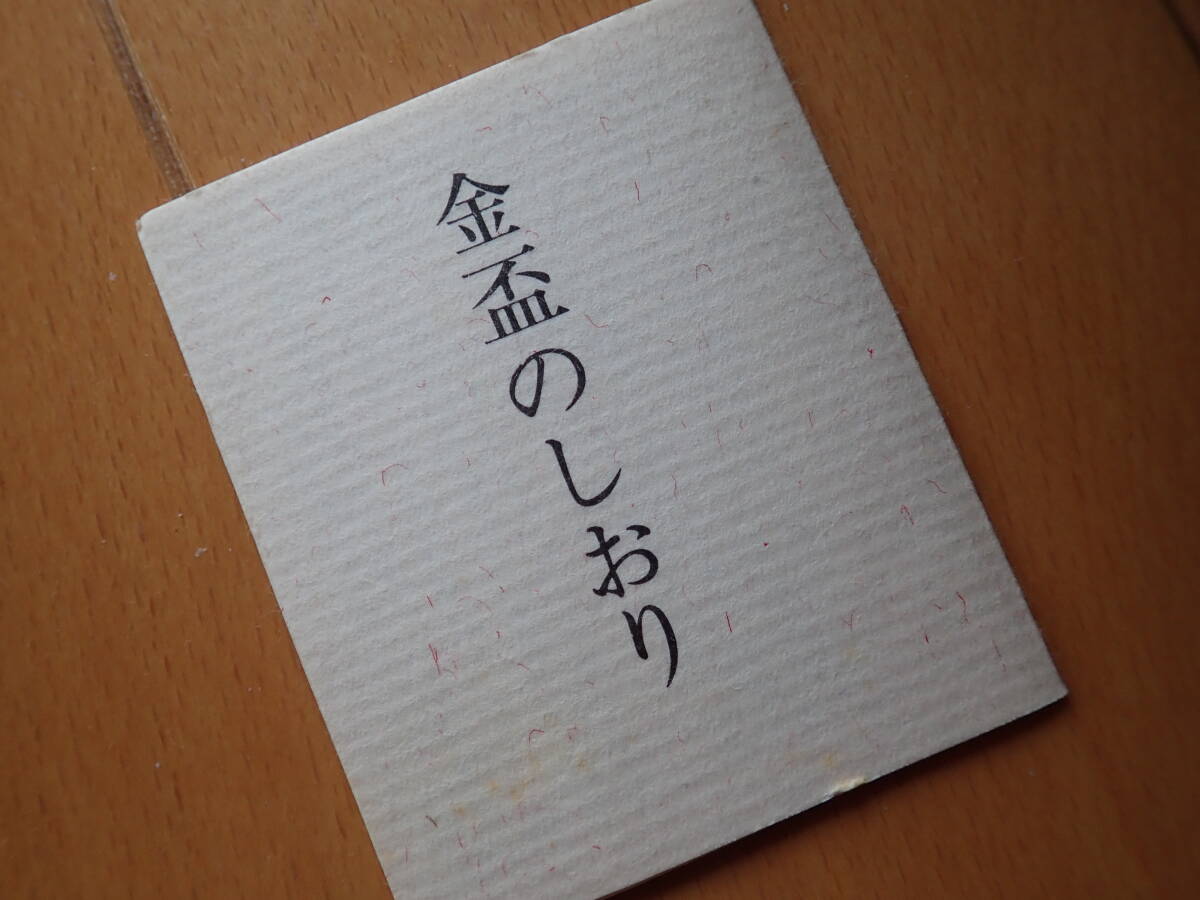 金盃のしおり